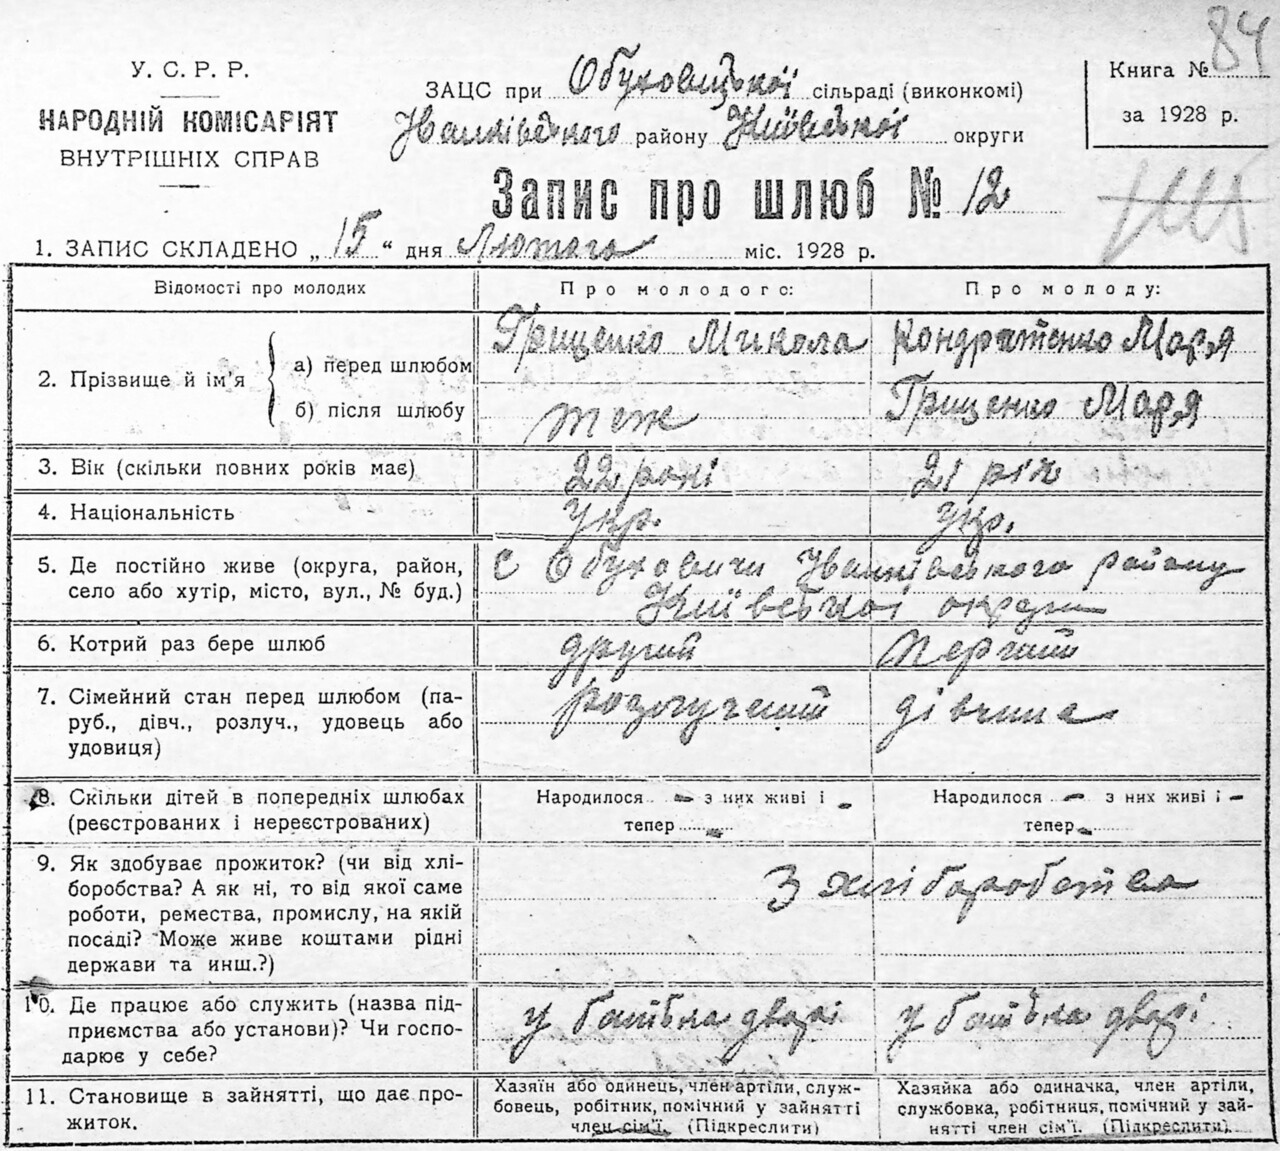 84
У. С. Р. Р.
НАРОДНІЙ КОМІСАРІЯТ
ВНУТРІШНІХ СПРАВ
ЗАЦС при Обуховицької сільраді (виконкомі)
Іванківського району Київської округи
Книга №
за 1928 р.
Запис про шлюб № 12
1. ЗАПИС СКЛАДЕНО „ 15 “ дня Лютого міс. 1928 р.
Відомості про молодих
Про молодого:
Про молоду:
2. Прізвище й ім'я
а) перед шлюбом
Грищенко Микола
Кондратенко Мар'я
б) після шлюбу
теж
Грищенко Мар'я
3. Вік (скільки повних років має)
22 рокі
21 рік
4. Національність
Укр.
Укр.
5. Де постійно живе (округа, район,
село або хутір, місто, вул., № буд.)
с Обуховичи Іванківського району
Київської округи
6. Котрий раз бере шлюб
другий
перший
7. Сімейний стан перед шлюбом (па-
руб., дівч., розлуч., удовець або
удовиця)
розлучений
дівчина
8. Скільки дітей в попередніх шлюбах
(реєстрованих і нереєстрованих)
Народилося - з них живі і -
тепер -
Народилося - з них живі і -
тепер -
9. Як здобуває прожиток? (чи від хлі-
боробства? А як ні, то від якої саме
роботи, ремества, промислу, на якій
посаді? Може живе коштами рідні
держави та инш.?)
З хліборобства
10. Де працює або служить (назва під-
приємства або установи)? Чи госпо-
дарює у себе?
у батька дворі
у батька дворі
11. Становище в зайнятті, що дає про-
житок.
Хазяїн або одинець, член артілі, служ-
бовець, робітник, помічний у зайнятті
член сім'ї. (Підкреслити)
Хазяйка або одиначка, член артілі,
службовка, робітниця, помічний у зай-
нятті член сім'ї. (Підкреслити)